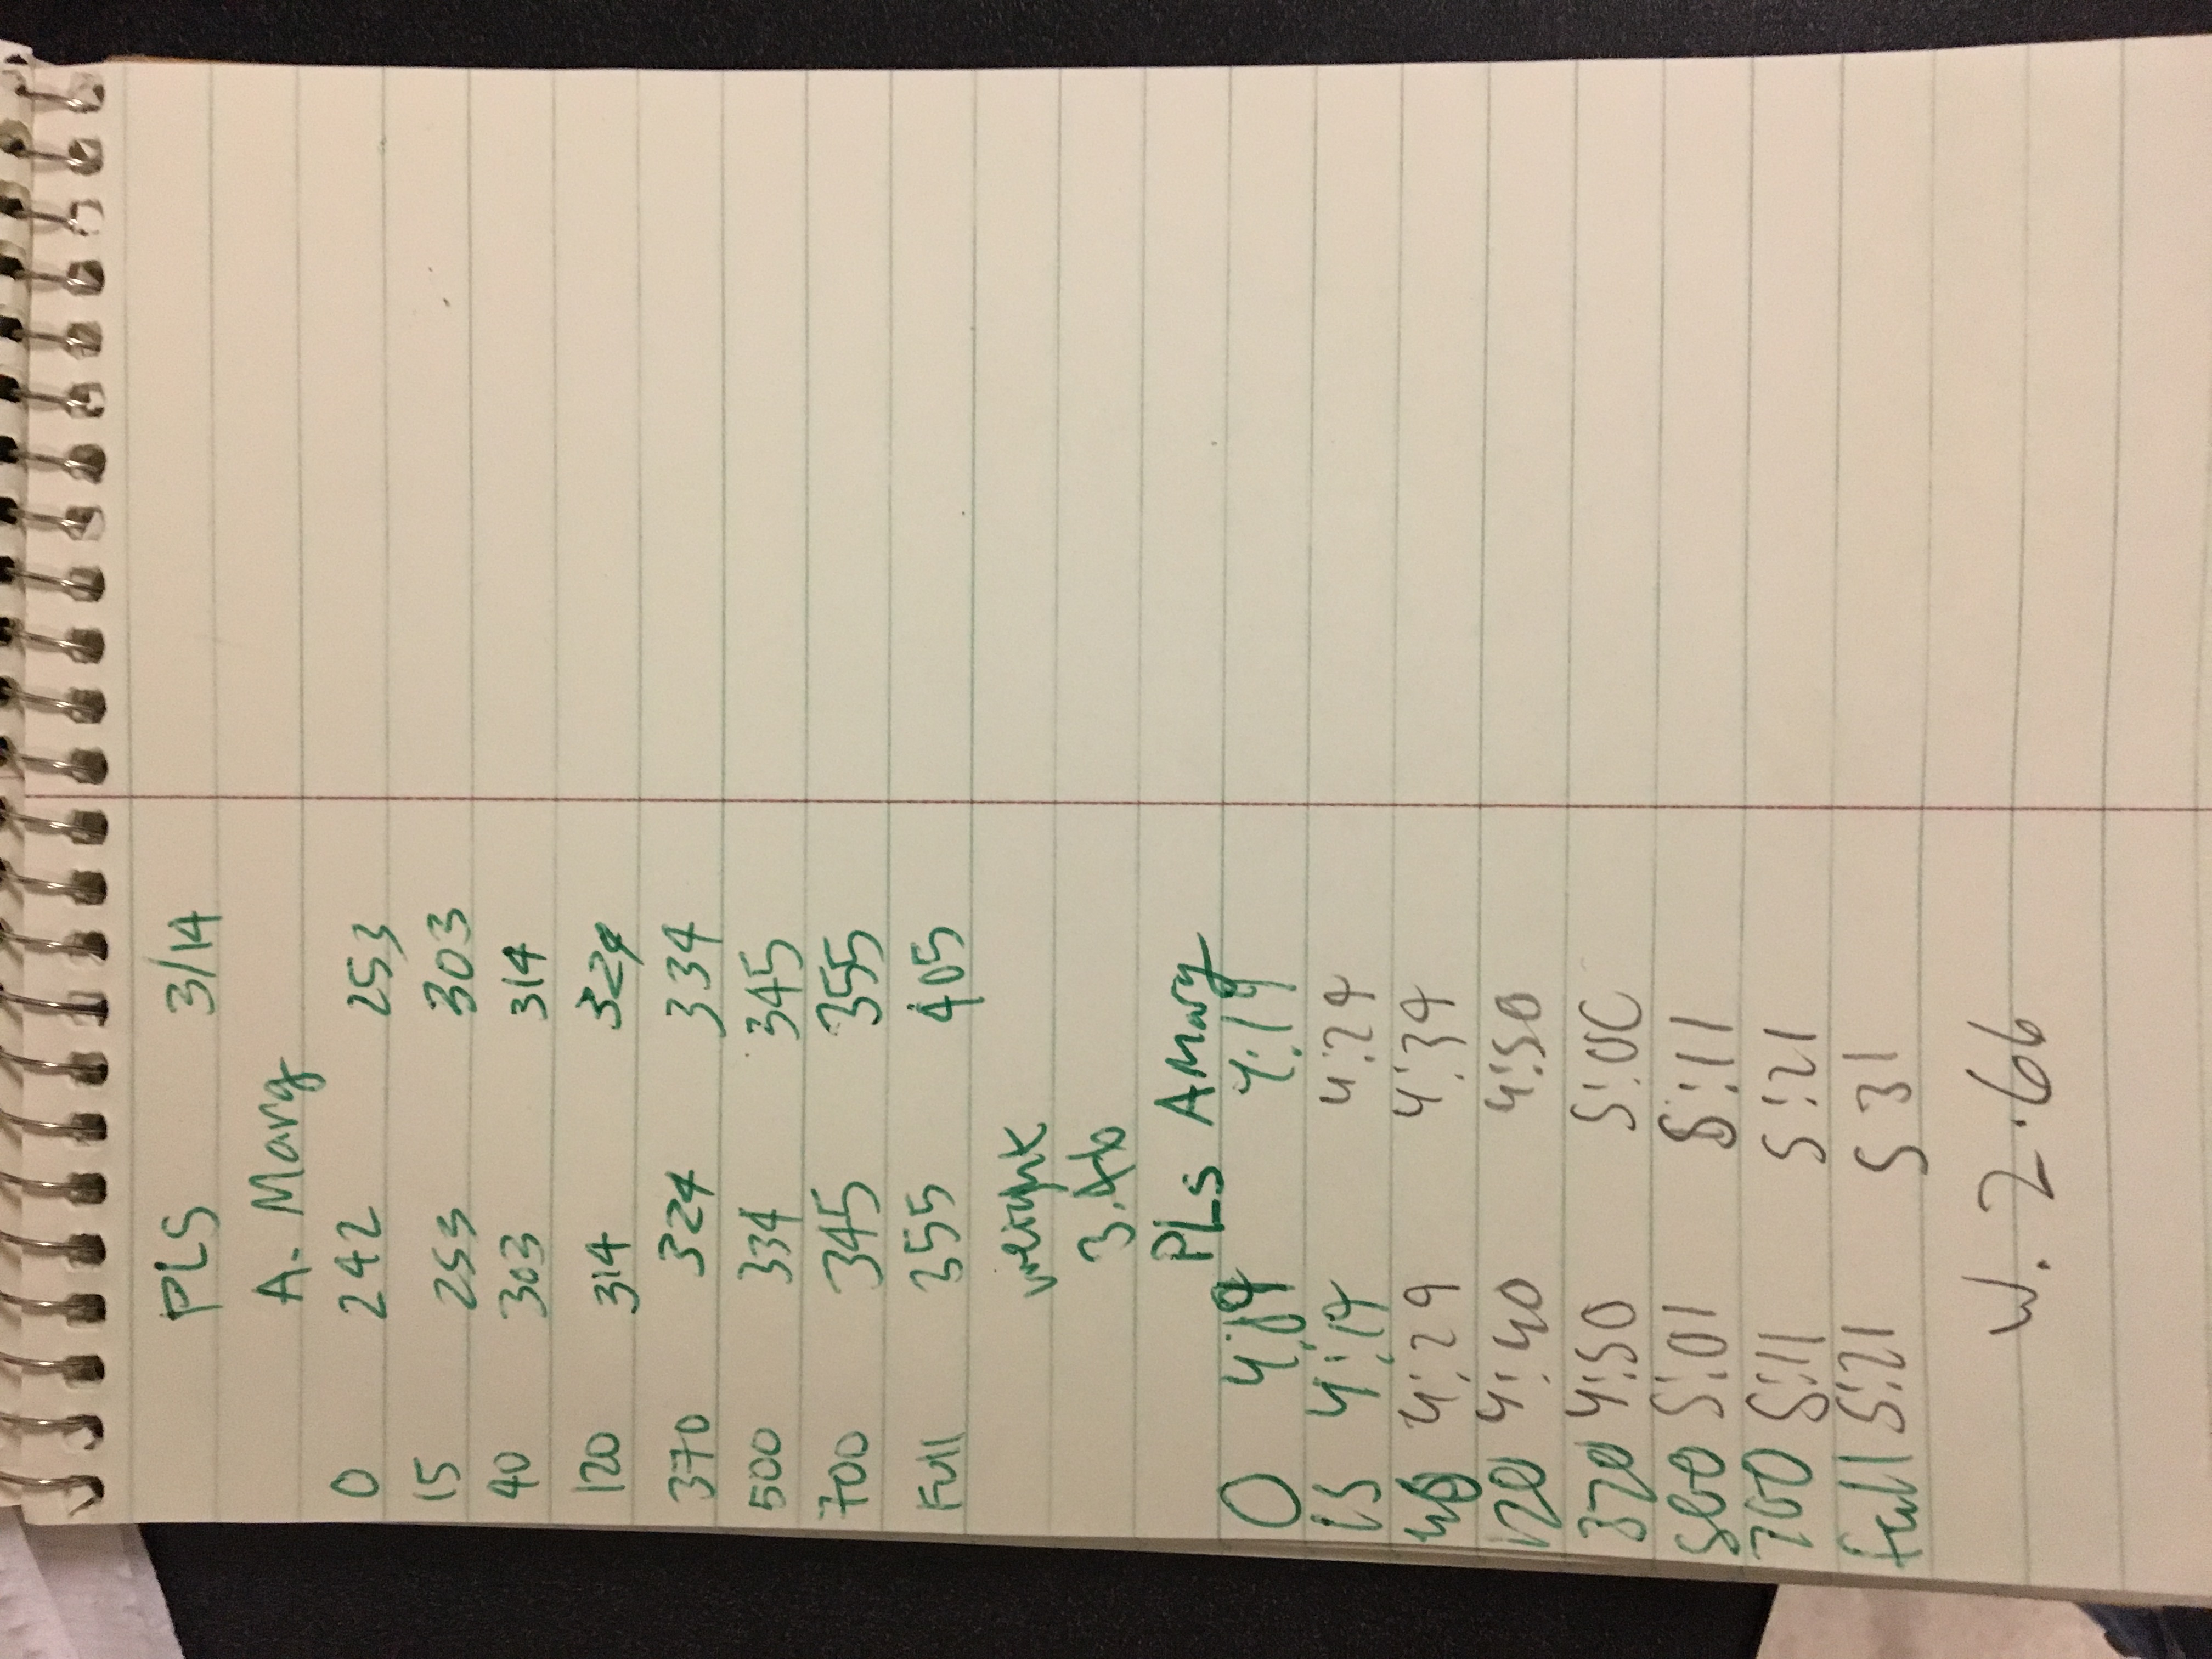 PLS 3/14
A. Marg
0 242 253
15 253 303
40 303 314
120 314 324
370 324 334
500 334 345
700 345 355
Full 355 405
weight
3.46
PLS AMarg
0 4:09 4:19
15 4:19 4:29
40 4:29 4:39
120 4:40 4:50
370 4:50 5:00
500 5:01 5:11
700 5:11 5:21
full 5:21 5 31
W. 2.66